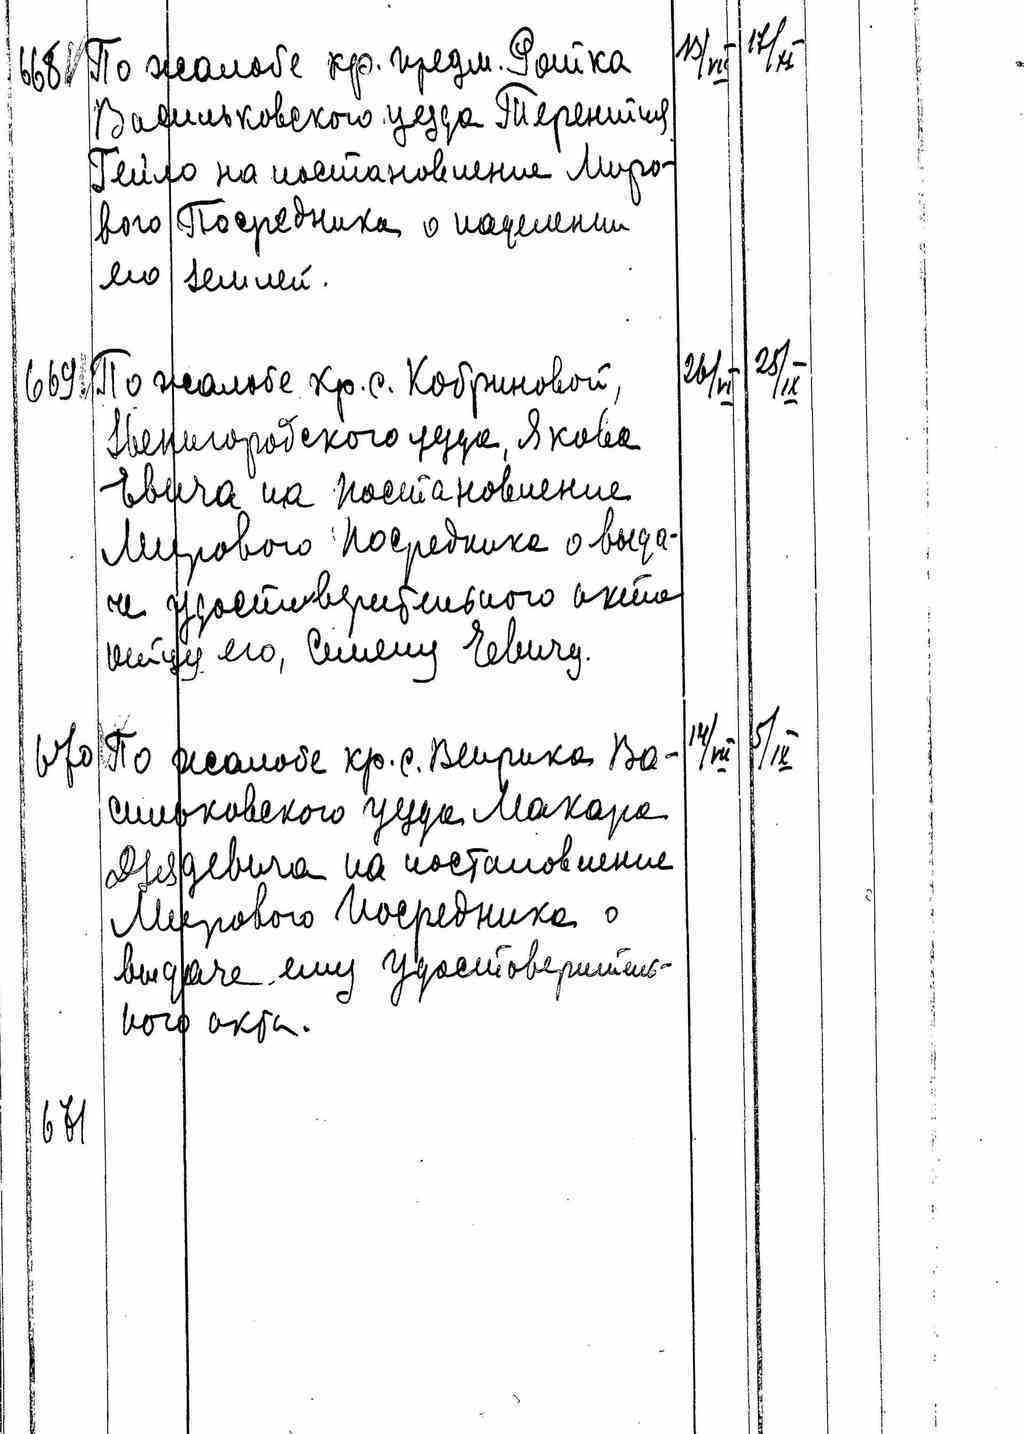 668 По жалобе кр. предм. Ротка 13/VII 17/XI
Васильковского уезда Терентия
Гейло на постановление Миро-
вого Посредника о наделении
его землей.
669 По жалобе кр. с. Кобриновой, 26/VI 25/IX
Звенигородского уезда, Якова
Евича на постановление
Мирового Посредника о выда-
че удостоверительного акта
отцу его, Семену Евичу.
670 По жалобе кр. с. Веприка Ва- 14/VII 5/IX
сильковского уезда Макара
на постановление
Мирового Посредника о
выдаче ему удостоверитель-
ного акта.
671